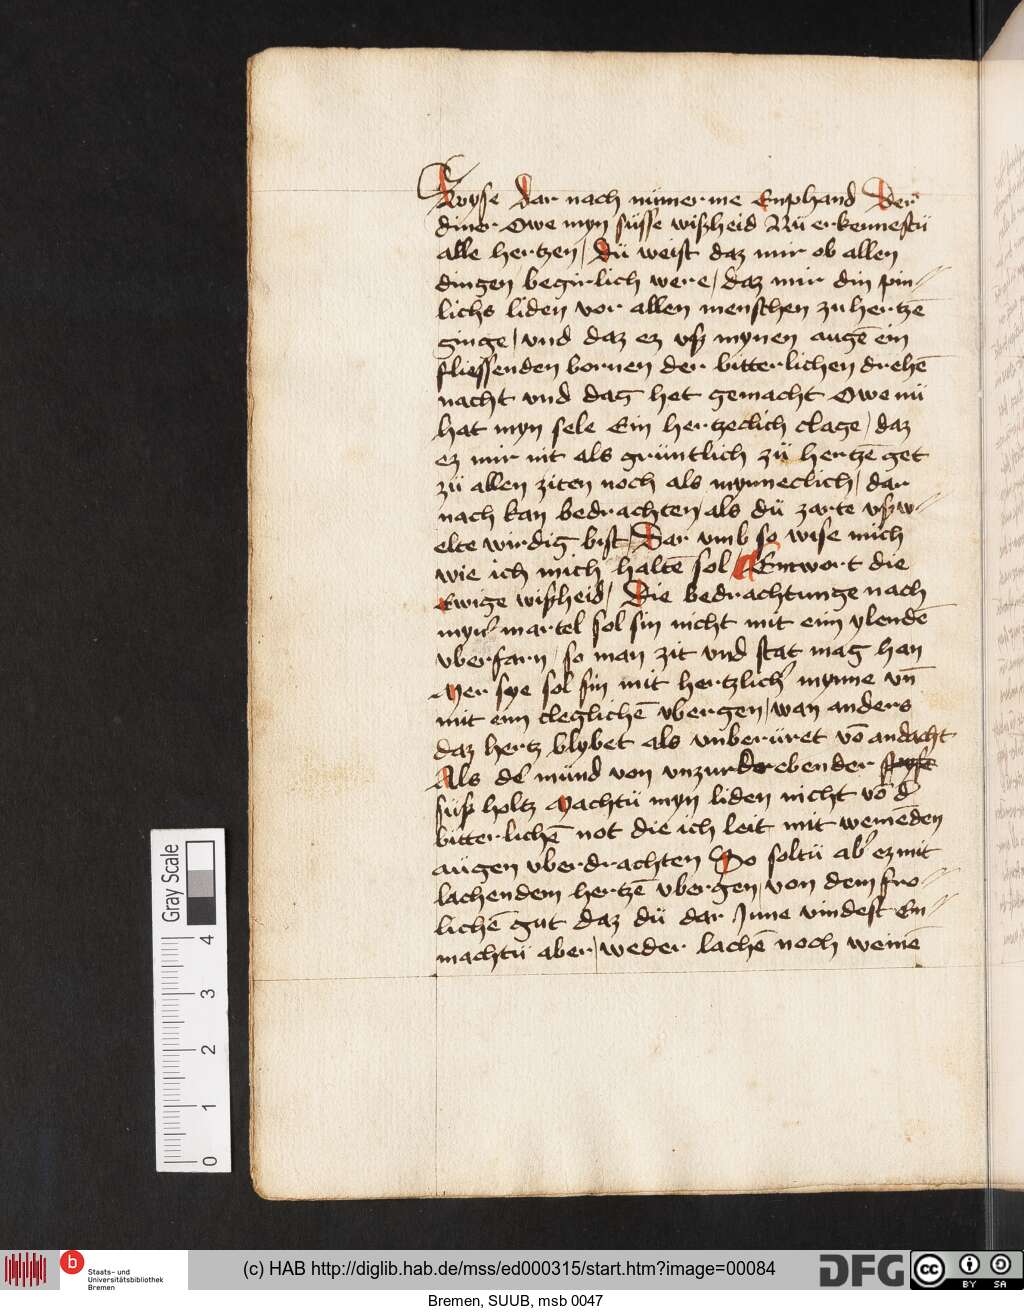 wyse Dar nach nümerme Enphand Der
diner Owe myn süsse wißheid Nü erkennestü
alle hertzen / Dü weist daz mir ob allen
dingen begirlich were / daz mir din pin⸗
lichs liden vor allen menschen zu hertzē
ginge / vnd daz ez vsß mynen augē ein
fliessenden bornen der bitterlichen drehē
nacht vnd dag het gemacht Owe nü
hat myn sele Ein hertzeclich clage / daz
ez mir nit als grüntlich zü hertzē get
zü allen ziten noch als mynneclich / dar
nach kan bedrachten / als dü zarte vsßw⸗
elte wirdig bist / Dar vmb so wise mich
wie ich mich haltē sol / Entwort die
Ewige wißheid / Die bedrachtunge nach
myner martel sol sin nicht mit eim ylendē
vberfarn / so man zit vnd stat mag han
Mer sye sol sin mit hertzlicher mynne vn̄
mit eim cleglichē vbergen / wan anders
daz hertz blybet als vnberüret vō andacht
Als der münd von vnzurdrebender
süß holtz Machtü myn liden nicht vō der
bitterlichē not die ich leit mit weinēden
augen vberdrachten So soltü aber ez mit
lachendem hertzē vbergen / von dem fro⸗
lichē gut daz dü dar Jnne vindest En⸗
machtü aber / weder lachē noch weinē
Gray Scale
4
3
2
1
0
b Staats- und
Universitätsbibliothek
Bremen
(c) HAB http://diglib.hab.de/mss/ed000315/start.htm?image=00084
DFG
cc BY SA
Bremen, SUUB, msb 0047